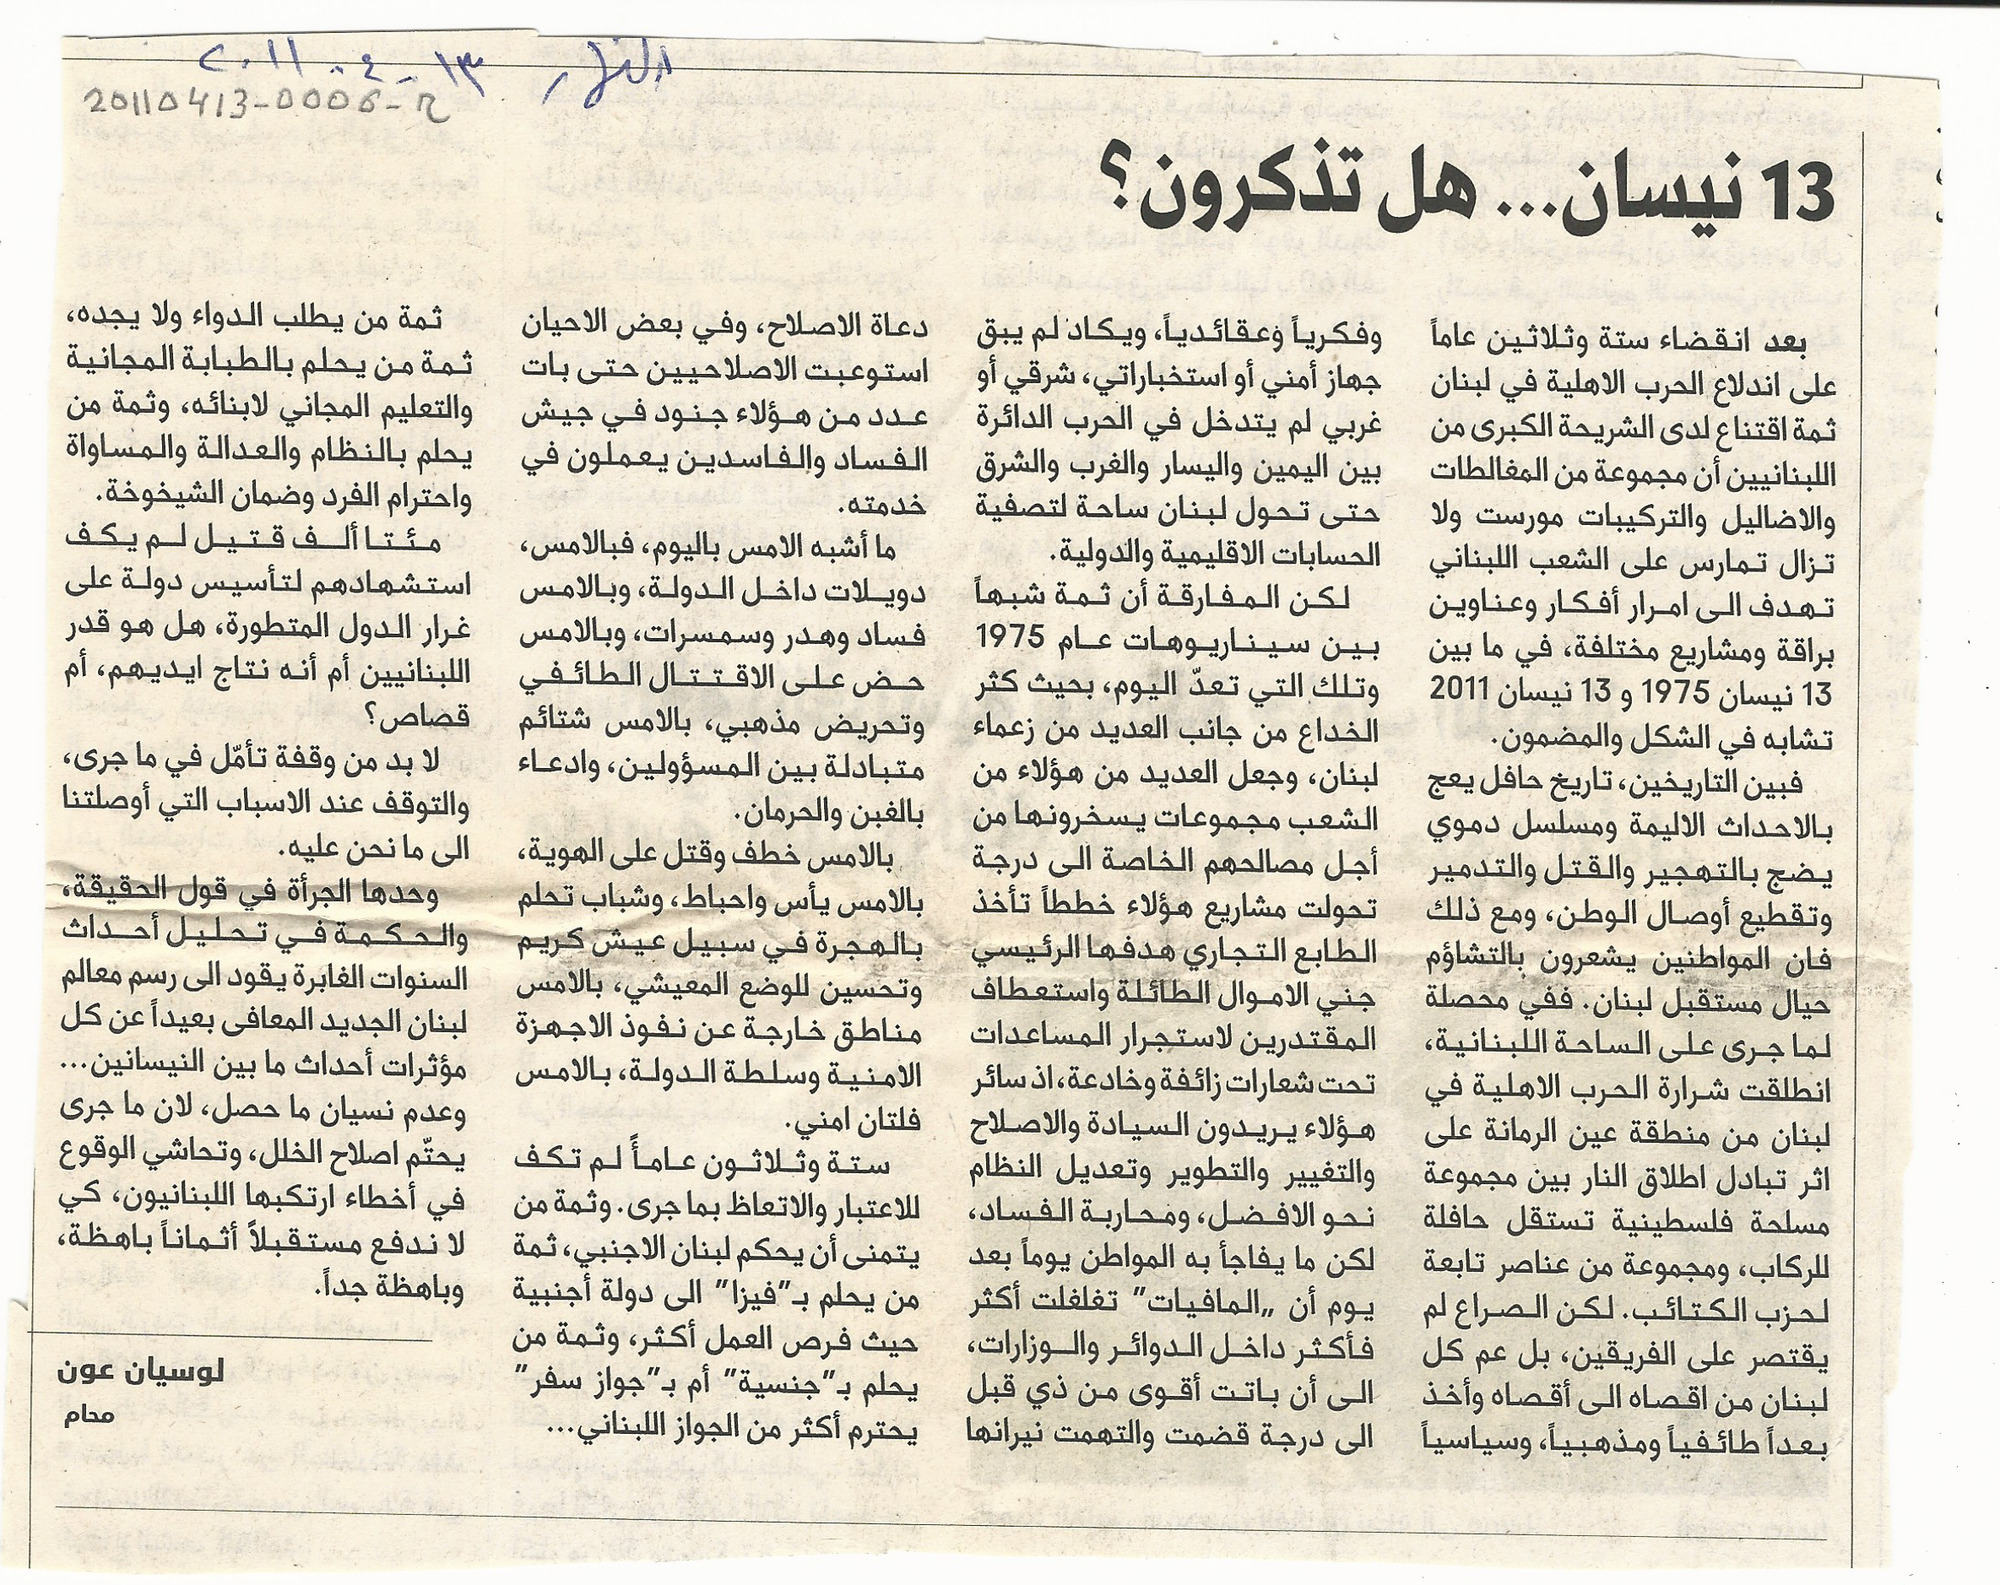 النهار ١٣-٤-٢٠١١
20110413-0006-ح
13 نيسان... هل تذكرون؟
بعد انقضاء ستة وثلاثين عاماً
على اندلاع الحرب الاهلية في لبنان
ثمة اقتناع لدى الشريحة الكبرى من
اللبنانيين أن مجموعة من المغالطات
والاضاليل والتركيبات مورست ولا
تزال تمارس على الشعب اللبناني
تهدف الى امرار أفكار وعناوين
براقة ومشاريع مختلفة، في ما بين
13 نيسان 1975 و 13 نيسان 2011
تشابه في الشكل والمضمون.
فبين التاريخين، تاريخ حافل يعج
بالاحداث الاليمة ومسلسل دموي
يضج بالتهجير والقتل والتدمير
وتقطيع أوصال الوطن، ومع ذلك
فان المواطنين يشعرون بالتشاؤم
حيال مستقبل لبنان. ففي محصلة
لما جرى على الساحة اللبنانية،
انطلقت شرارة الحرب الاهلية في
لبنان من منطقة عين الرمانة على
اثر تبادل اطلاق النار بين مجموعة
مسلحة فلسطينية تستقل حافلة
للركاب، ومجموعة من عناصر تابعة
لحزب الكتائب. لكن الصراع لم
يقتصر على الفريقين، بل عم كل
لبنان من اقصاه الى أقصاه وأخذ
بعداً طائفياً ومذهبياً، وسياسياً
وفكرياً وعقائدياً، ويكاد لم يبق
جهاز أمني أو استخباراتي، شرقي أو
غربي لم يتدخل في الحرب الدائرة
بين اليمين واليسار والغرب والشرق
حتى تحول لبنان ساحة لتصفية
الحسابات الاقليمية والدولية.
لكن المفارقة أن ثمة شبهاً
بين سيناريوهات عام 1975
وتلك التي تعدّ اليوم، بحيث كثر
الخداع من جانب العديد من زعماء
لبنان، وجعل العديد من هؤلاء من
الشعب مجموعات يسخرونها من
أجل مصالحهم الخاصة الى درجة
تحولت مشاريع هؤلاء خططاً تأخذ
الطابع التجاري هدفها الرئيسي
جني الاموال الطائلة واستعطاف
المقتدرين لاستجرار المساعدات
تحت شعارات زائفة وخادعة، اذ سائر
هؤلاء يريدون السيادة والاصلاح
والتغيير والتطوير وتعديل النظام
نحو الافضل، ومحاربة الفساد،
لكن ما يفاجأ به المواطن يوماً بعد
يوم أن „المافيات" تغلغلت أكثر
فأكثر داخل الدوائر والوزارات،
الى أن باتت أقوى من ذي قبل
الى درجة قضمت والتهمت نيرانها
دعاة الاصلاح، وفي بعض الاحيان
استوعبت الاصلاحيين حتى بات
عدد من هؤلاء جنود في جيش
الفساد والفاسدين يعملون في
خدمته.
ما أشبه الامس باليوم، فبالامس،
دويلات داخل الدولة، وبالامس
فساد وهدر وسمسرات، وبالامس
حض على الاقتتال الطائفي
وتحريض مذهبي، بالامس شتائم
متبادلة بين المسؤولين، وادعاء
بالغبن والحرمان.
بالامس خطف وقتل على الهوية،
بالامس يأس واحباط، وشباب تحلم
بالهجرة في سبيل عيش كريم
وتحسين للوضع المعيشي، بالامس
مناطق خارجة عن نفوذ الاجهزة
الامنية وسلطة الدولة، بالامس
فلتان امني.
ستة وثلاثون عاماً لم تكف
للاعتبار والاتعاظ بما جرى. وثمة من
يتمنى أن يحكم لبنان الاجنبي، ثمة
من يحلم بـ"فيزا" الى دولة أجنبية
حيث فرص العمل أكثر، وثمة من
يحلم بـ"جنسية" أم بـ"جواز سفر"
يحترم أكثر من الجواز اللبناني...
ثمة من يطلب الدواء ولا يجده،
ثمة من يحلم بالطبابة المجانية
والتعليم المجاني لابنائه، وثمة من
يحلم بالنظام والعدالة والمساواة
واحترام الفرد وضمان الشيخوخة.
مئتا ألف قتيل لم يكف
استشهادهم لتأسيس دولة على
غرار الدول المتطورة، هل هو قدر
اللبنانيين أم أنه نتاج ايديهم، أم
قصاص؟
لا بد من وقفة تأمّل في ما جرى،
والتوقف عند الاسباب التي أوصلتنا
الى ما نحن عليه.
وحدها الجرأة في قول الحقيقة،
والحكمة في تحليل أحداث
السنوات الغابرة يقود الى رسم معالم
لبنان الجديد المعافى بعيداً عن كل
مؤثرات أحداث ما بين النيسانين...
وعدم نسيان ما حصل، لان ما جرى
يحتّم اصلاح الخلل، وتحاشي الوقوع
في أخطاء ارتكبها اللبنانيون، كي
لا ندفع مستقبلاً أثماناً باهظة،
وباهظة جداً.
لوسيان عون
محام